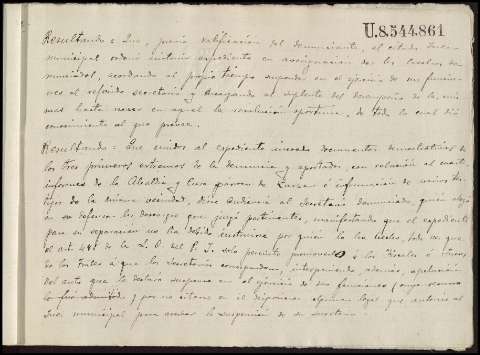 U.8.544.861
Resultando: Que, previa ratificación del denunciante, el citado Juez
municipal ordenó instruir expediente en averiguación de los hechos de-
nunciados, acordando al propio tiempo suspender en el ejercicio de sus funcio-
nes al referido secretario y encargando al suplente del desempeño de la mis-
mas hasta recaer en aquel la resolución oportuna, de todo lo cual dió
conocimiento al que provee.
Resultando: Que unidos al expediente incoado documentos demostrativos de
los tres primeros extremos de la denuncia y aportados, con relación al cuarto,
informes de la Alcaldía y Cura párroco de é información de varios tes-
tigos de la misma vecindad, dióse audiencia al Secretario denunciado, quien alegó
en su defensa los descargos que juzgó pertinentes, manifestando que el expediente
para su separación no ha debido instruirse por quien lo ha hecho, toda vez que
el art. de la L. O. del P. J. solo permite promoverlo á los Fiscales ó Jueces
de los Partidos á que los Secretarios correspondan, interponiendo, además, apelación
del auto que le declaró suspenso en el ejercicio de sus funciones (cuyo recurso
le fué admitido, y por no citarse en él disposición alguna legal que autorice al
Juez municipal para acordar la suspensión de su Secretario.